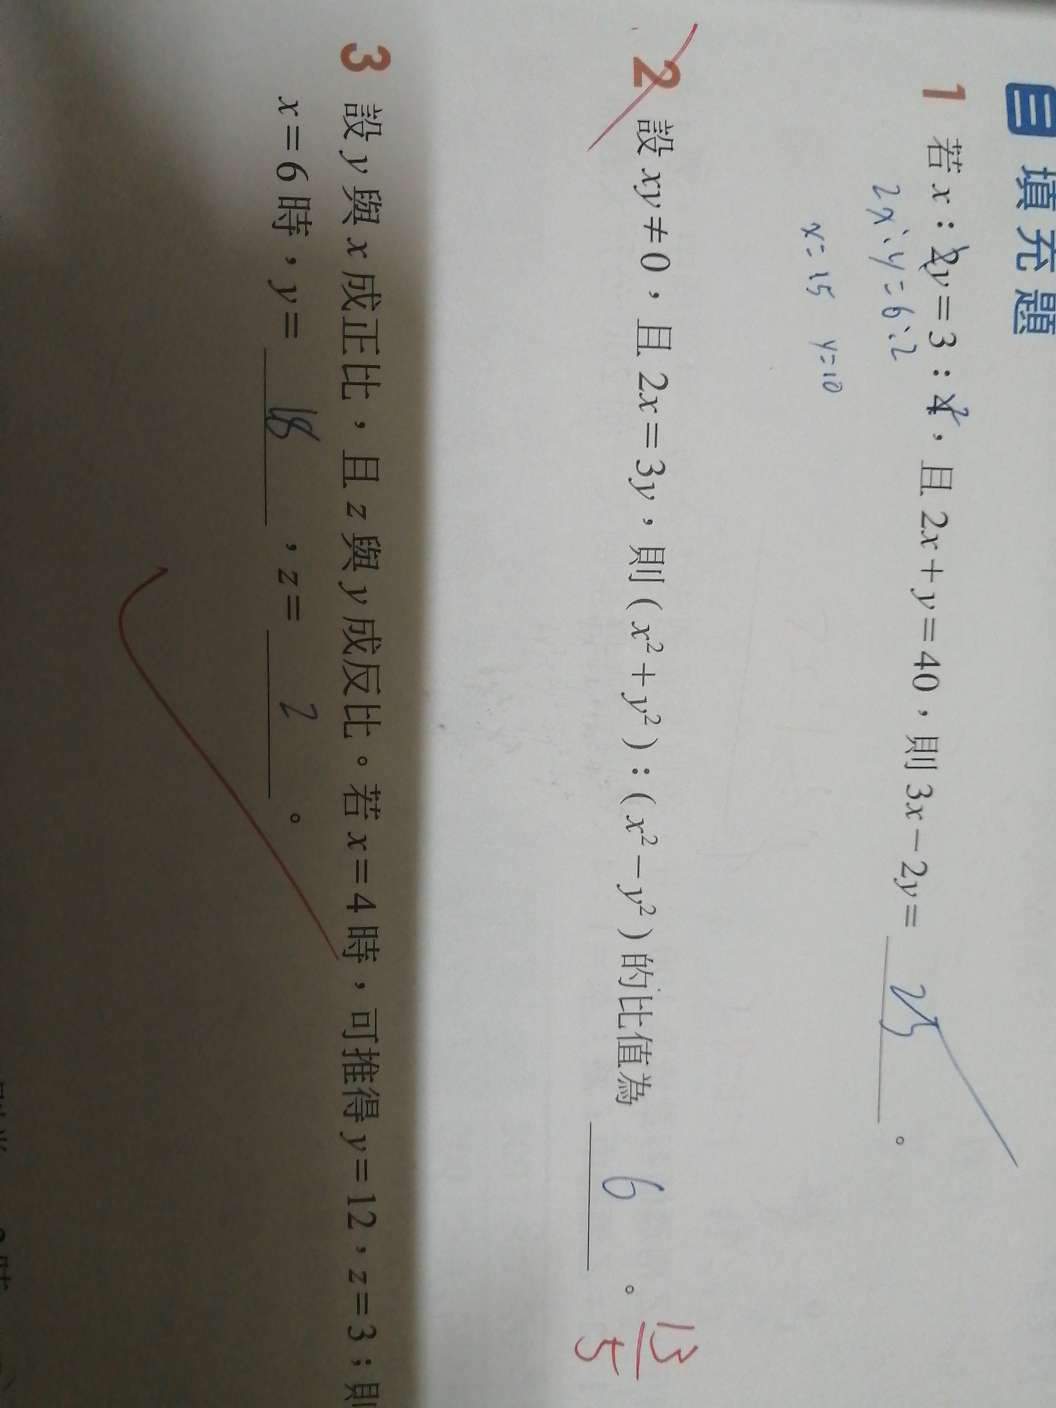 三 填充題
1 若 x：2y＝3：4，且 2x＋y＝40，則 3x－2y＝ 25 。
2
2x:y=6:2
x=15 y=10
2 設 xy≠0，且 2x＝3y，則 (x²＋y²)：(x²－y²) 的比值為 6 。
13/5
3 設 y 與 x 成正比，且 z 與 y 成反比。若 x＝4 時，可推得 y＝12，z＝3；則
x＝6 時，y＝ 18 ，z＝ 2 。